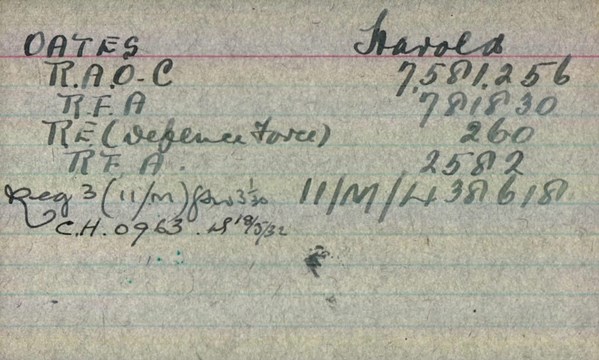 OATES Harold
R.A.O-C 7,581,256
R.F.A 781830
RE (Defence Force) 260
R F A. 2582
Reg 3 (11/M) 11/M/438618
C.H. 0963. 18/5/32